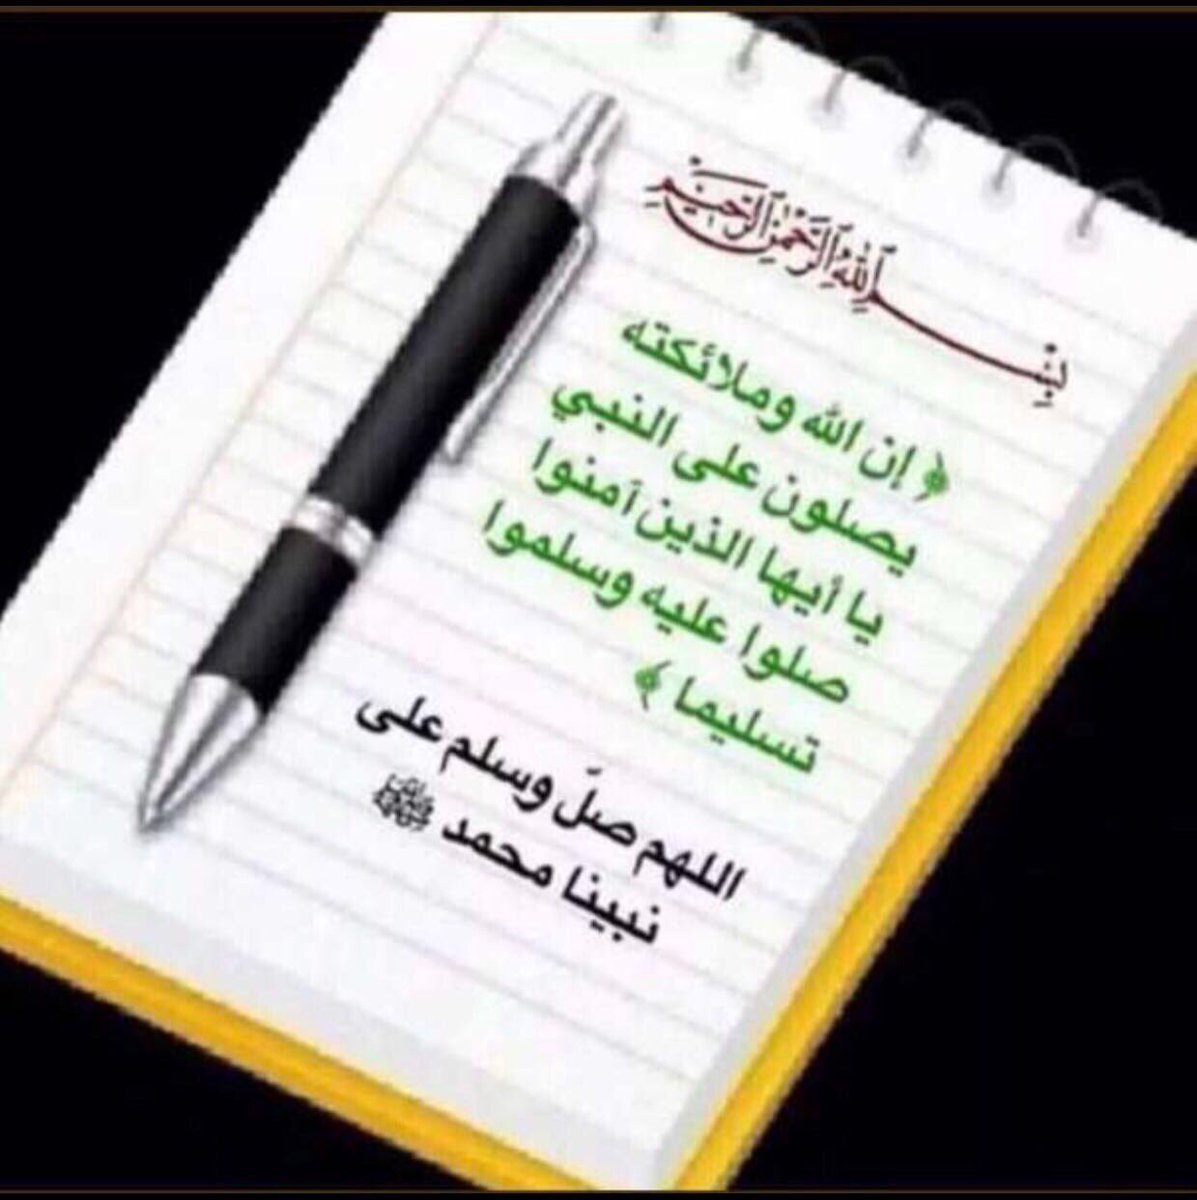 بِسْمِ اللَّهِ الرَّحْمَٰنِ الرَّحِيمِ
﴿ إن الله وملائكته
يصلون على النبي
يا أيها الذين آمنوا
صلوا عليه وسلموا
تسليما ﴾
اللهم صلّ وسلم على
نبينا محمد ﷺ